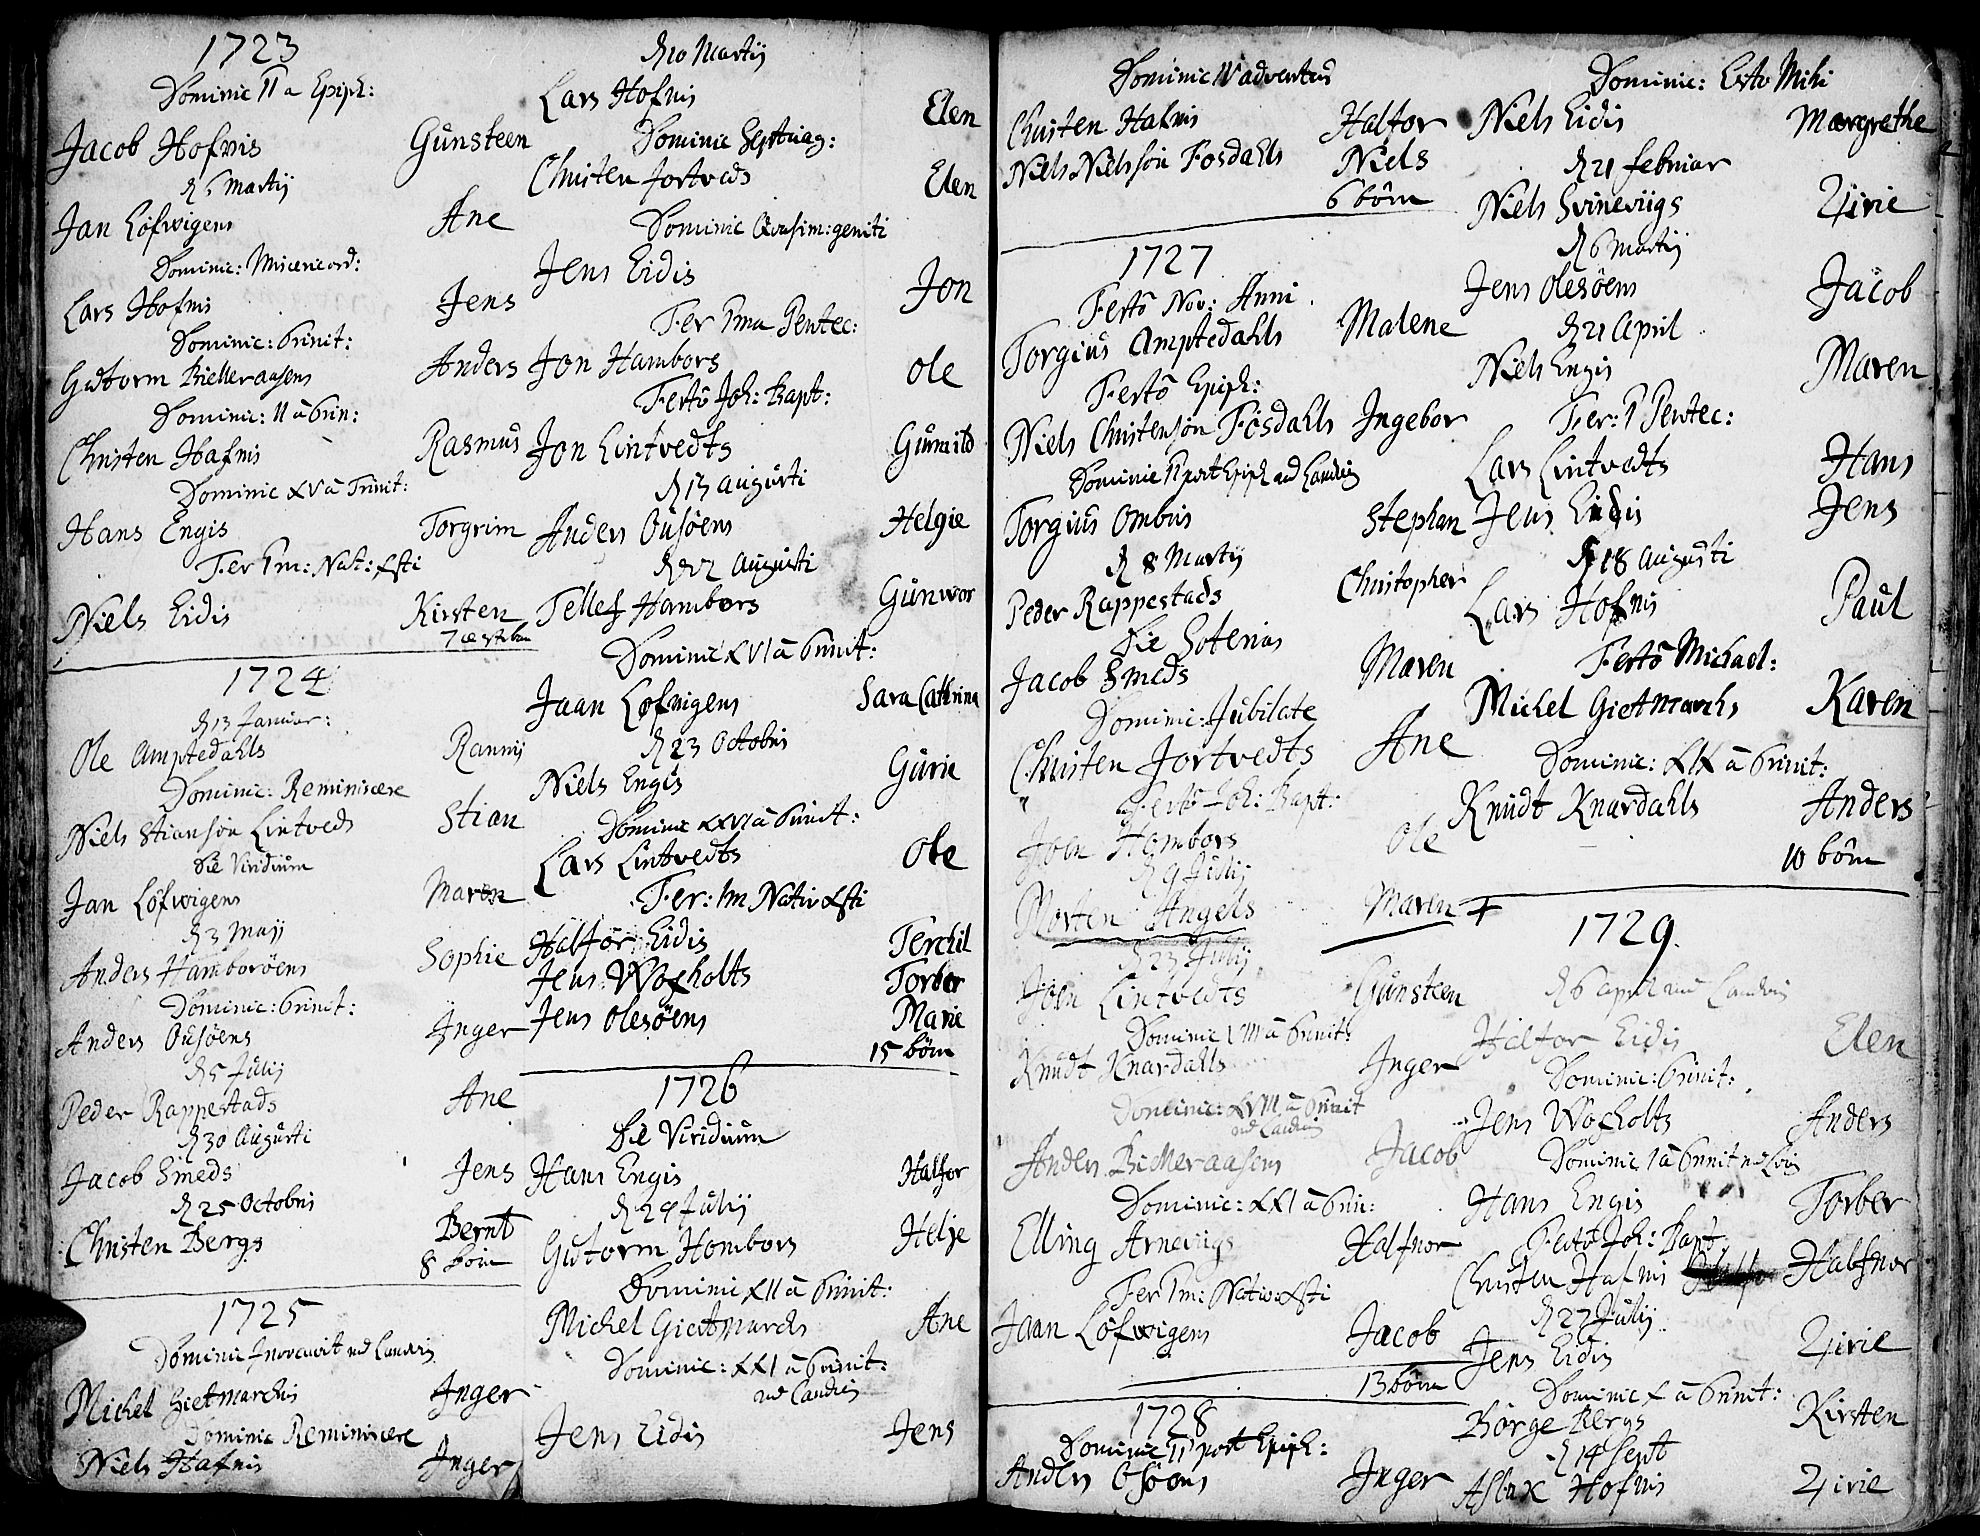 1723
Dominic II a Epiph:
Jacob Hofnis Gunsteen
d 5 Martij
Jan Löfwigens Ane
Dominic: Misericord:
Lars Hofnis Jens
Dominic: Trinit:
Guttorm Bielleraasens Anders
Dominic: II a Trin:
Christen Hafnis Rasmus
Dominic XV a Trinit:
Hans Engis Torgrim
Fer 1m: Nat: Xsti
Niels Eidis Kirsten
1724
d 13 Januar:
Ole Amptedahls Rannij
Dominic: Reminiscere
Niels Stiansön Lintveds Stian
Die Viridium
Jan Löfwigens Maren
d 3 Maij
Anders Hamboröens Sophie
Dominic: Trinit:
Anders Ousöens Inger
d 5 Julij
Peder Rappestads Ane
d 30 Augusti
Jacob Smeds Jens
d 25 Octobris
Christen Bergs Bernt
8 börn
1725
Dominic Invocavit ved Landvig
Michel Gietmarchis Inger
Dominic Reminiscere
Niels Hafnis Inger
d 10 Martij
Lars Hofnis Elen
Dominic Septuag:
Christen Jortveds Elen
Dominic Qvasim:geniti
Jens Eidis Jon
Fer 1ma Pentec:
Jon Hambors Ole
Festo Joh: Bapt:
Jon Lintvedts Gunnild
d 13 Augusti
Anders Ousöens Helgie
d 22 Augusti
Tellef Hambors Gunwor
Dominic XVI a Trinit:
Jaan Löfwigens Sara Cathrina
d 23 Octobris
Niels Engis Gurie
Dominic XXVI a Trinit:
Lars Lintvedts Ole
Fer: 1m Nativ Xsti
Halfor Eidis Terchil
Jens Woxholts Torber
Jens Olesöens Marie
15 börn
1726
Die Viridium
Hans Engis Halfor
d 29 Julij
Guttorm Hombors Helje
Dominic XII a Trinit:
Michel Gietmarchs Ane
Dominic: XXI a Trinit:
ved Landvig
Jens Eidis Jens
Dominic IV adventus
Christen Hafnis Halfor
Niels Nielssön Fosdahls Niels
6 börn
1727
Festo Nov: Anni
Torgius Amptedahls Malene
Festo Epiph:
Niels Christensön Fosdahls Ingebor
Dominic II post Epiph ved Landvig
Torgius Ombris Stephan
d 8 Martij
Peder Rappestads Christopher
Die Soterias
Jacob Smeds Maren
Dominic: Jubilate
Christen Jortvedts Ane
Festo Joh: Bapt:
Joen Hambors Ole
d 9 Julij
Morten Angels Maren
d 23 Julij
Joen Lintvedts Gunsteen
Dominic VIII a Trinit:
Knudt Knardahls Inger
Dominic: XVIII a Trinit
ved Landvig
Anders Bielleraasens Jacob
Dominic: XXI a Trin:
Elling Arnevigs Halfnor
Fer 1m: Nativ: Xsti
Jaan Löfwigens Jacob
13 börn
1728
Dominic II post Epiph:
Anders Inger
Dominic: Esto Mihi
Niels Eidis Margrethe
d 21 Februar
Niels Svinevigs Zirie
d 6 Martij
Jens Olesöens Jacob
d 21 April
Niels Engis Maren
Fer: 1 Pentec:
Lars Lintvedts Hans
Jens Eidis Jens
d 18 Augusti
Lars Hofnis Paul
Festo Michael:
Michel Gietmarchs Karen
Dominic: XIX a Trinit:
Knudt Knardahls Anders
10 börn
1729.
d 6 april ved Landvig
Halfor Eidis Elen
Dominic: Trinit:
Jens Woxholts Anders
Dominic 1 a Trinit
Hans Engis Torber
Festo Joh: Bapt:
Christen Hafnis Halfnor
d 27 Julij
Jens Eidis Zirie
Dominic X a Trinit:
Börge Bergs Kirsten
d 14 Sept
Aslax Hofnis Zirie